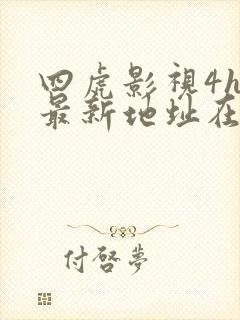 四虎影視4h
最新地址在
付啓夢